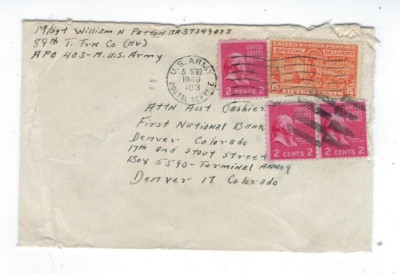 M/Sgt William N Patton RA37349077
89th T. Trk Co (Hv)
APO 403 - M. U.S. Army
U.S. ARMY
5
1949
403
POSTAL SERVICE
UNITED STATES POSTAGE
SPECIAL DELIVERY
15 FIFTEEN CENTS 15
2 CENTS 2
2 CENTS 2
2 CENTS 2
Attn Asst Cashier
First National Bank
Denver Colorado
17th and Stout Street
Box 5590 - Terminal Annex
Denver 17 Colorado